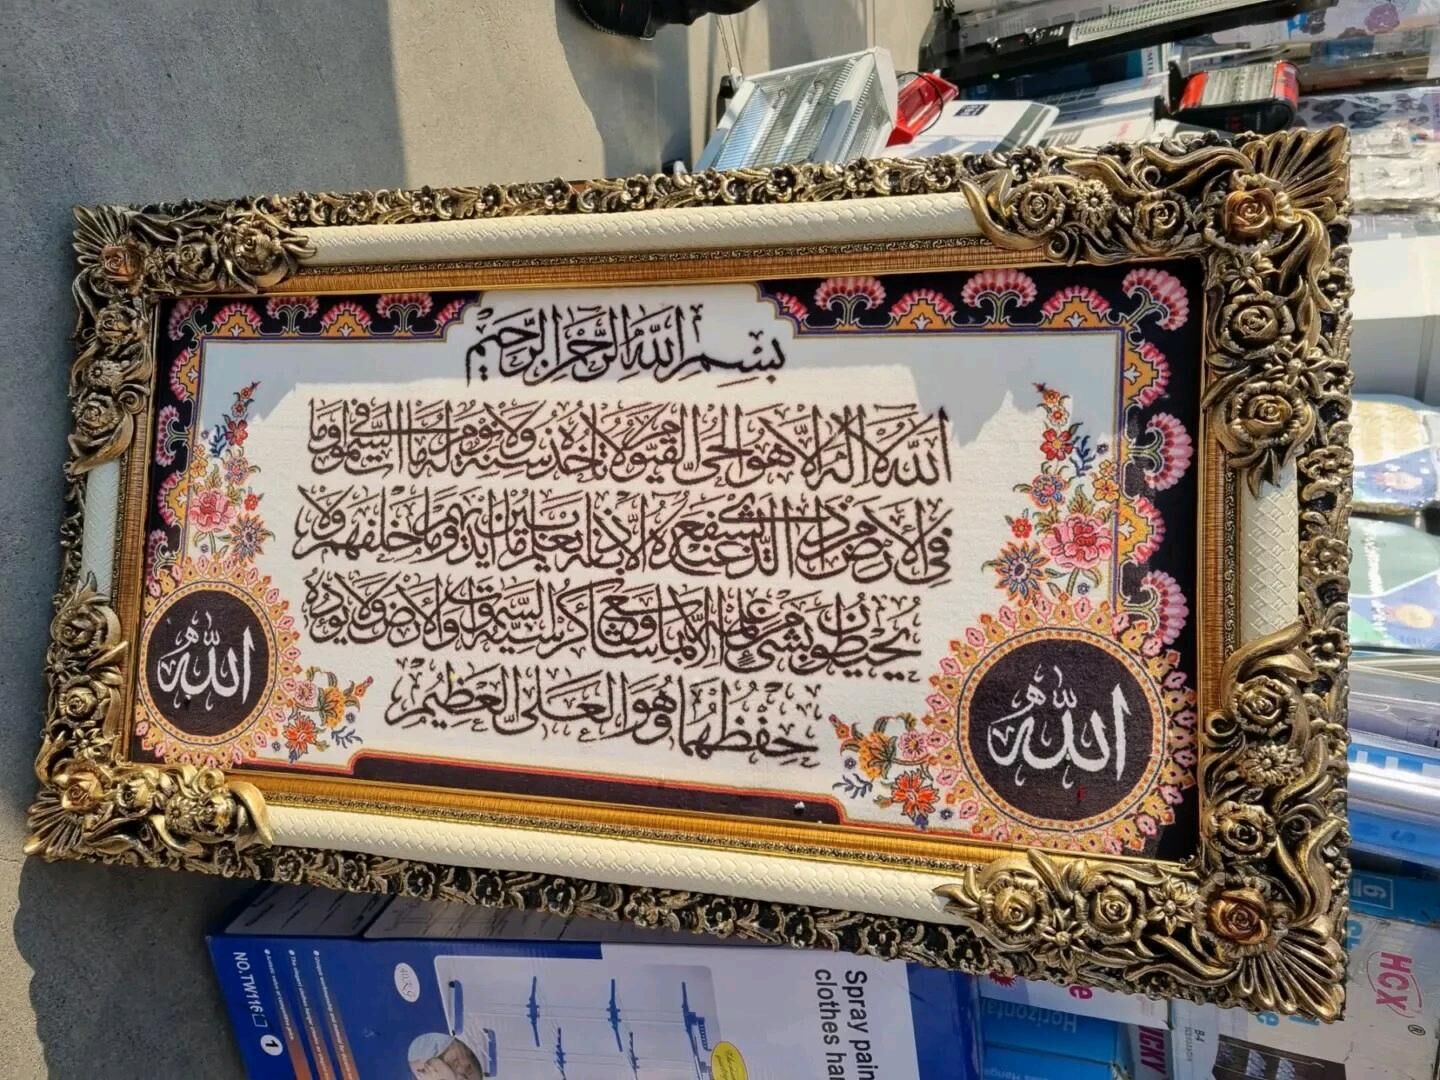 بِسْمِ اللَّهِ الرَّحْمَٰنِ الرَّحِيمِ
اللَّهُ لَا إِلَٰهَ إِلَّا هُوَ الْحَيُّ الْقَيُّومُ لَا تَأْخُذُهُ سِنَةٌ وَلَا نَوْمٌ لَهُ مَا فِي السَّمَاوَاتِ وَمَا
فِي الْأَرْضِ مَنْ ذَا الَّذِي يَشْفَعُ عِنْدَهُ إِلَّا بِإِذْنِهِ يَعْلَمُ مَا بَيْنَ أَيْدِيهِمْ وَمَا خَلْفَهُمْ وَلَا
يُحِيطُونَ بِشَيْءٍ مِنْ عِلْمِهِ إِلَّا بِمَا شَاءَ وَسِعَ كُرْسِيُّهُ السَّمَاوَاتِ وَالْأَرْضَ وَلَا يَئُودُهُ
حِفْظُهُمَا وَهُوَ الْعَلِيُّ الْعَظِيمُ
اللَّه
اللَّه
Spray pain
clothes ha
NO.TW116
1
HCX
Horizontal